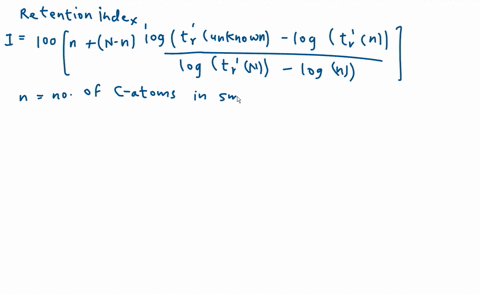 Retention index
I = 100 [ n + (N-n) log ( tr' (unknown) - log ( tr' (n)) / log ( tr' (N)) - log (n) ]
n = no. of C-atoms in sm